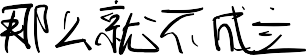 那么就不成立